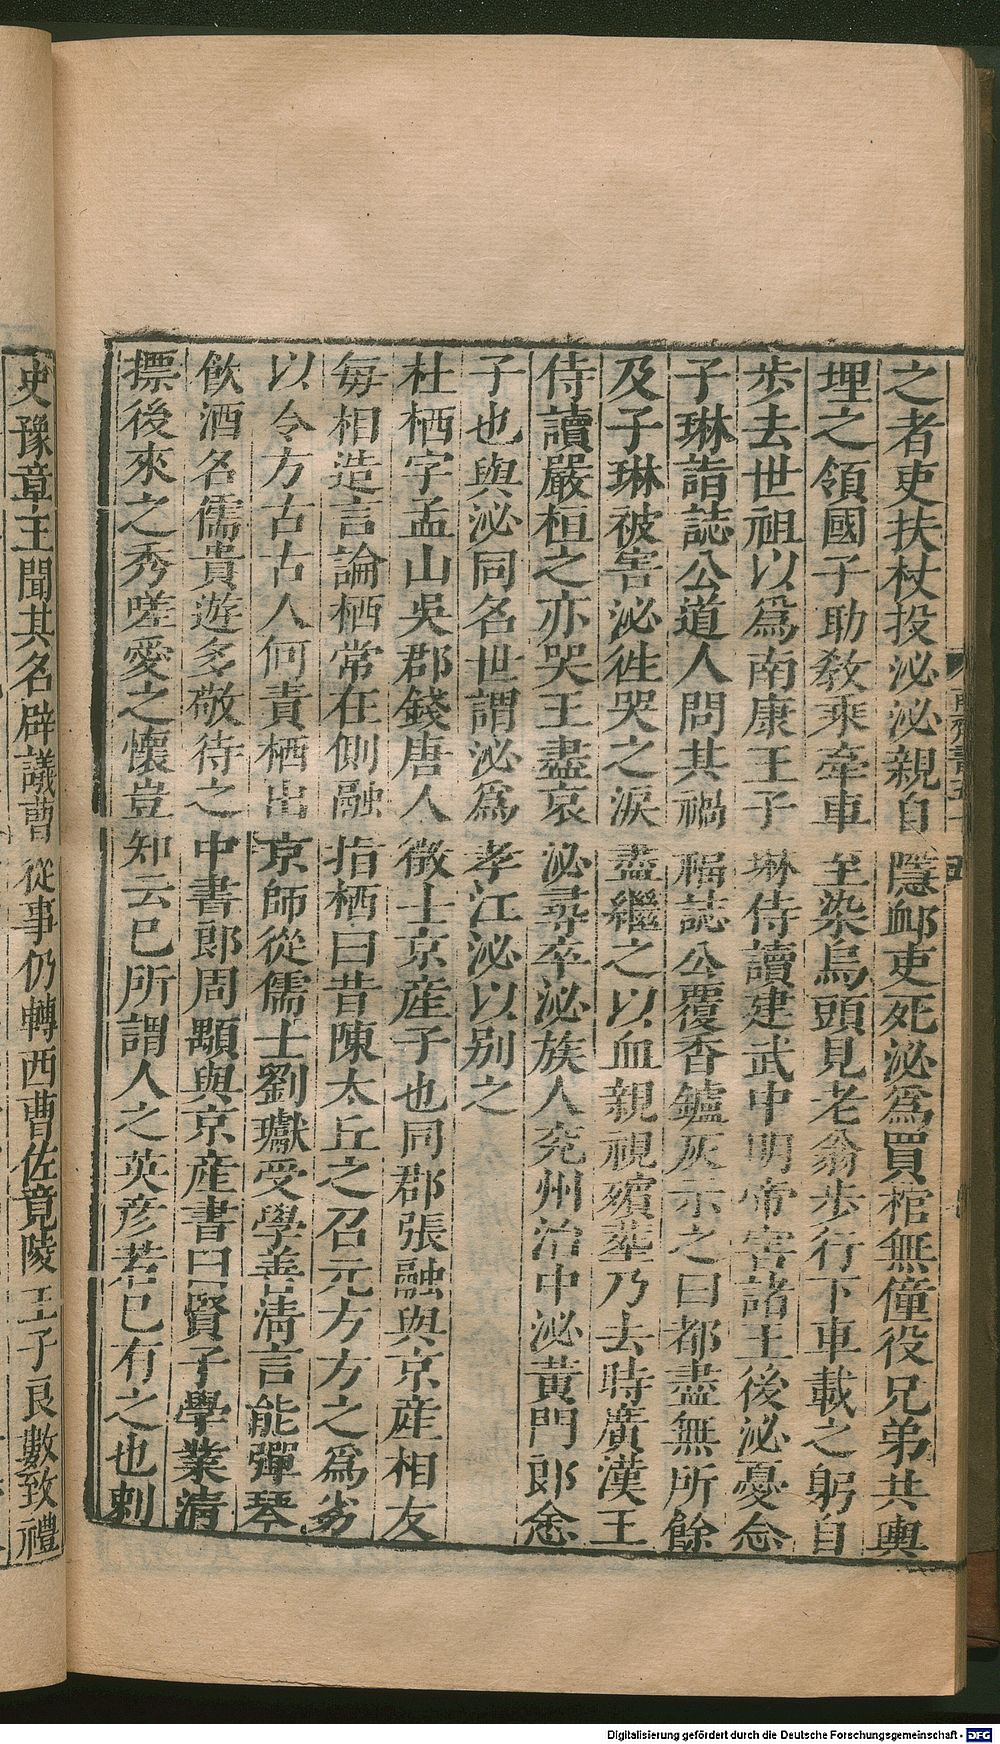 之者吏扶杖投泌泌親自隱䘏吏死泌爲買棺無僮役兄弟共輿
埋之領國子助敎乘牽車至染烏頭見老翁步行下車載之躬自
步去世祖以爲南康王子琳侍讀建武中明帝害諸王後泌憂念
子琳詣誌公道人問其禍福誌公覆香鑪灰示之曰都盡無所餘
及子琳被害泌徃哭之淚盡繼之以血親視殯葬乃去時廣漢王
侍讀嚴桓之亦哭王盡哀泌尋卒泌族人兖州治中泌黃門郎悆
子也與泌同名世謂泌爲孝江泌以别之
杜栖字孟山吳郡錢唐人徵士京産子也同郡張融與京産相友
每相造言論栖常在側融指栖曰昔陳太丘之召元方方之爲劣
以今方古古人何責栖出京師從儒士劉瓛受學善淸言能彈琴
飮酒名儒貴遊多敬待之中書郎周顒與京産書曰賢子學業淸
摽後來之秀嗟愛之懷豈知云巳所謂人之英彥若巳有之也刺
史豫章王聞其名辟議曹從事仍轉西曹佐竟陵王子良數致禮
南齊書五
Digitalisierung gefördert durch die Deutsche Forschungsgemeinschaft - DFG